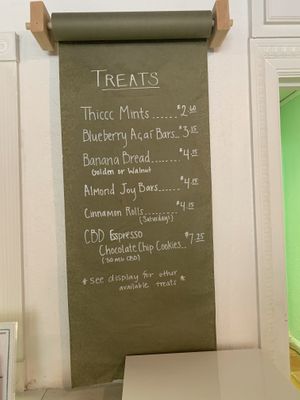 TREATS
Thiccc Mints...... $2.60
Blueberry Açaí Bars.. $3.15
Banana Bread........ $4.15
Golden or Walnut
Almond Joy Bars...... $4.15
Cinnamon Rolls......... $4.15
(Saturdays)
CBD Espresso
Chocolate Chip Cookies.. $7.25
(30 mg CBD)
* See display for other
available treats *